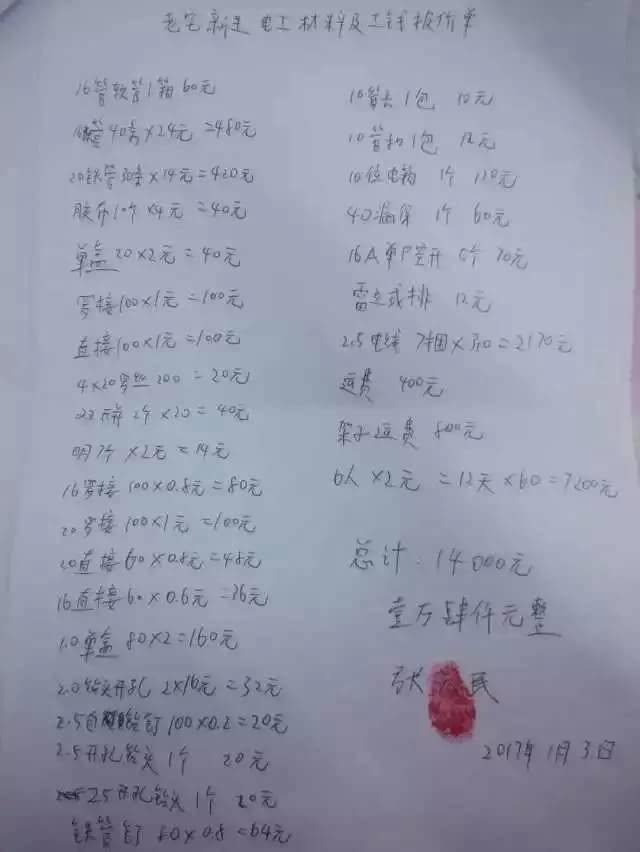 老宅新建电工材料及工钱报价单
16管软管1箱 60元
管40条×24元=480元
20铁管30条×14元=420元
胶布10个×4元=40元
单盒20×2元=40元
罗接100×1元=100元
直接100×1元=100元
4×20罗丝200=20元
2个×20=40元
明7个×2元=14元
16罗接100×0.8元=80元
20罗接100×1元=100元
20直接60×0.8元=48元
16直接60×0.6元=36元
1.0单盒80×2=160元
2.0钻头开孔2×16元=32元
2.5自 钉100×0.2=20元
2.5开孔钻头1个 20元
25开孔钻头1个 20元
铁管钉80×0.8=64元
10管卡1包 10元
10管扣1包 12元
10位电箱1个 120元
40漏保1个 60元
16A单P空开 个 70元
雷立或排 12元
2.5电线7捆×310=2170元
运费 400元
架子运费 800元
6人×2元=12天×60=7200元
总计:14000元
壹万肆仟元整
张 民
2017年1月3日